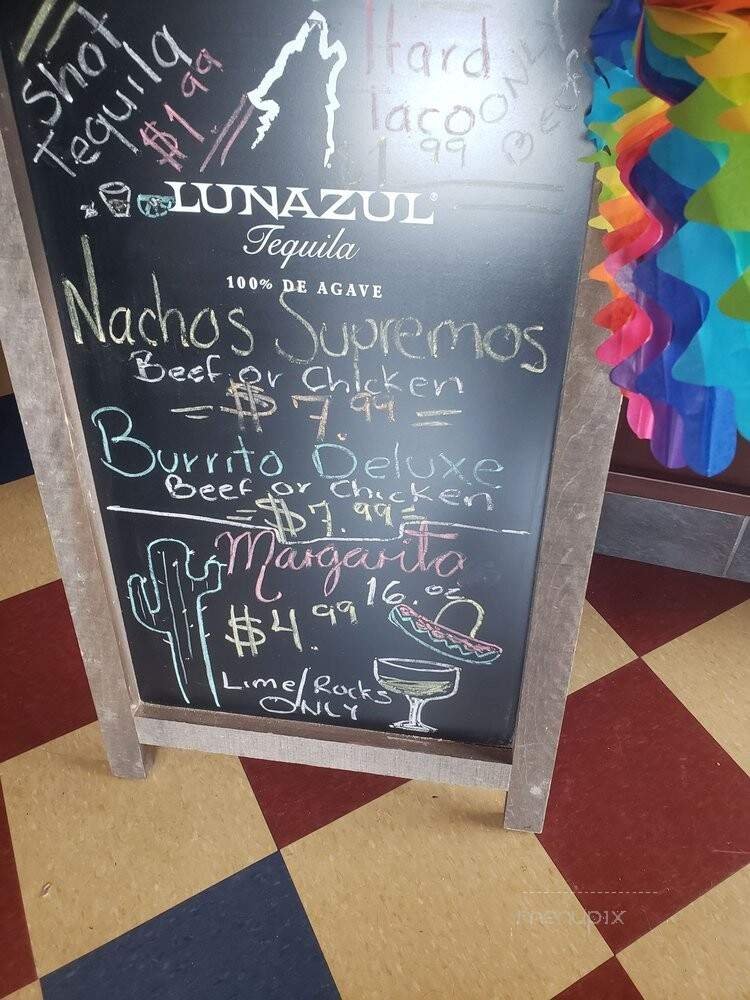 Shot
Tequila
$1.99
Hard
Taco
ONLY
1.99
LUNAZUL®
Tequila
100% DE AGAVE
Nachos Supremos
Beef or Chicken
= $7.99 =
Burrito Deluxe
Beef or Chicken
= $7.99 =
Margarita
16.oz
$4.99
Lime/Rocks
ONLY
menupix